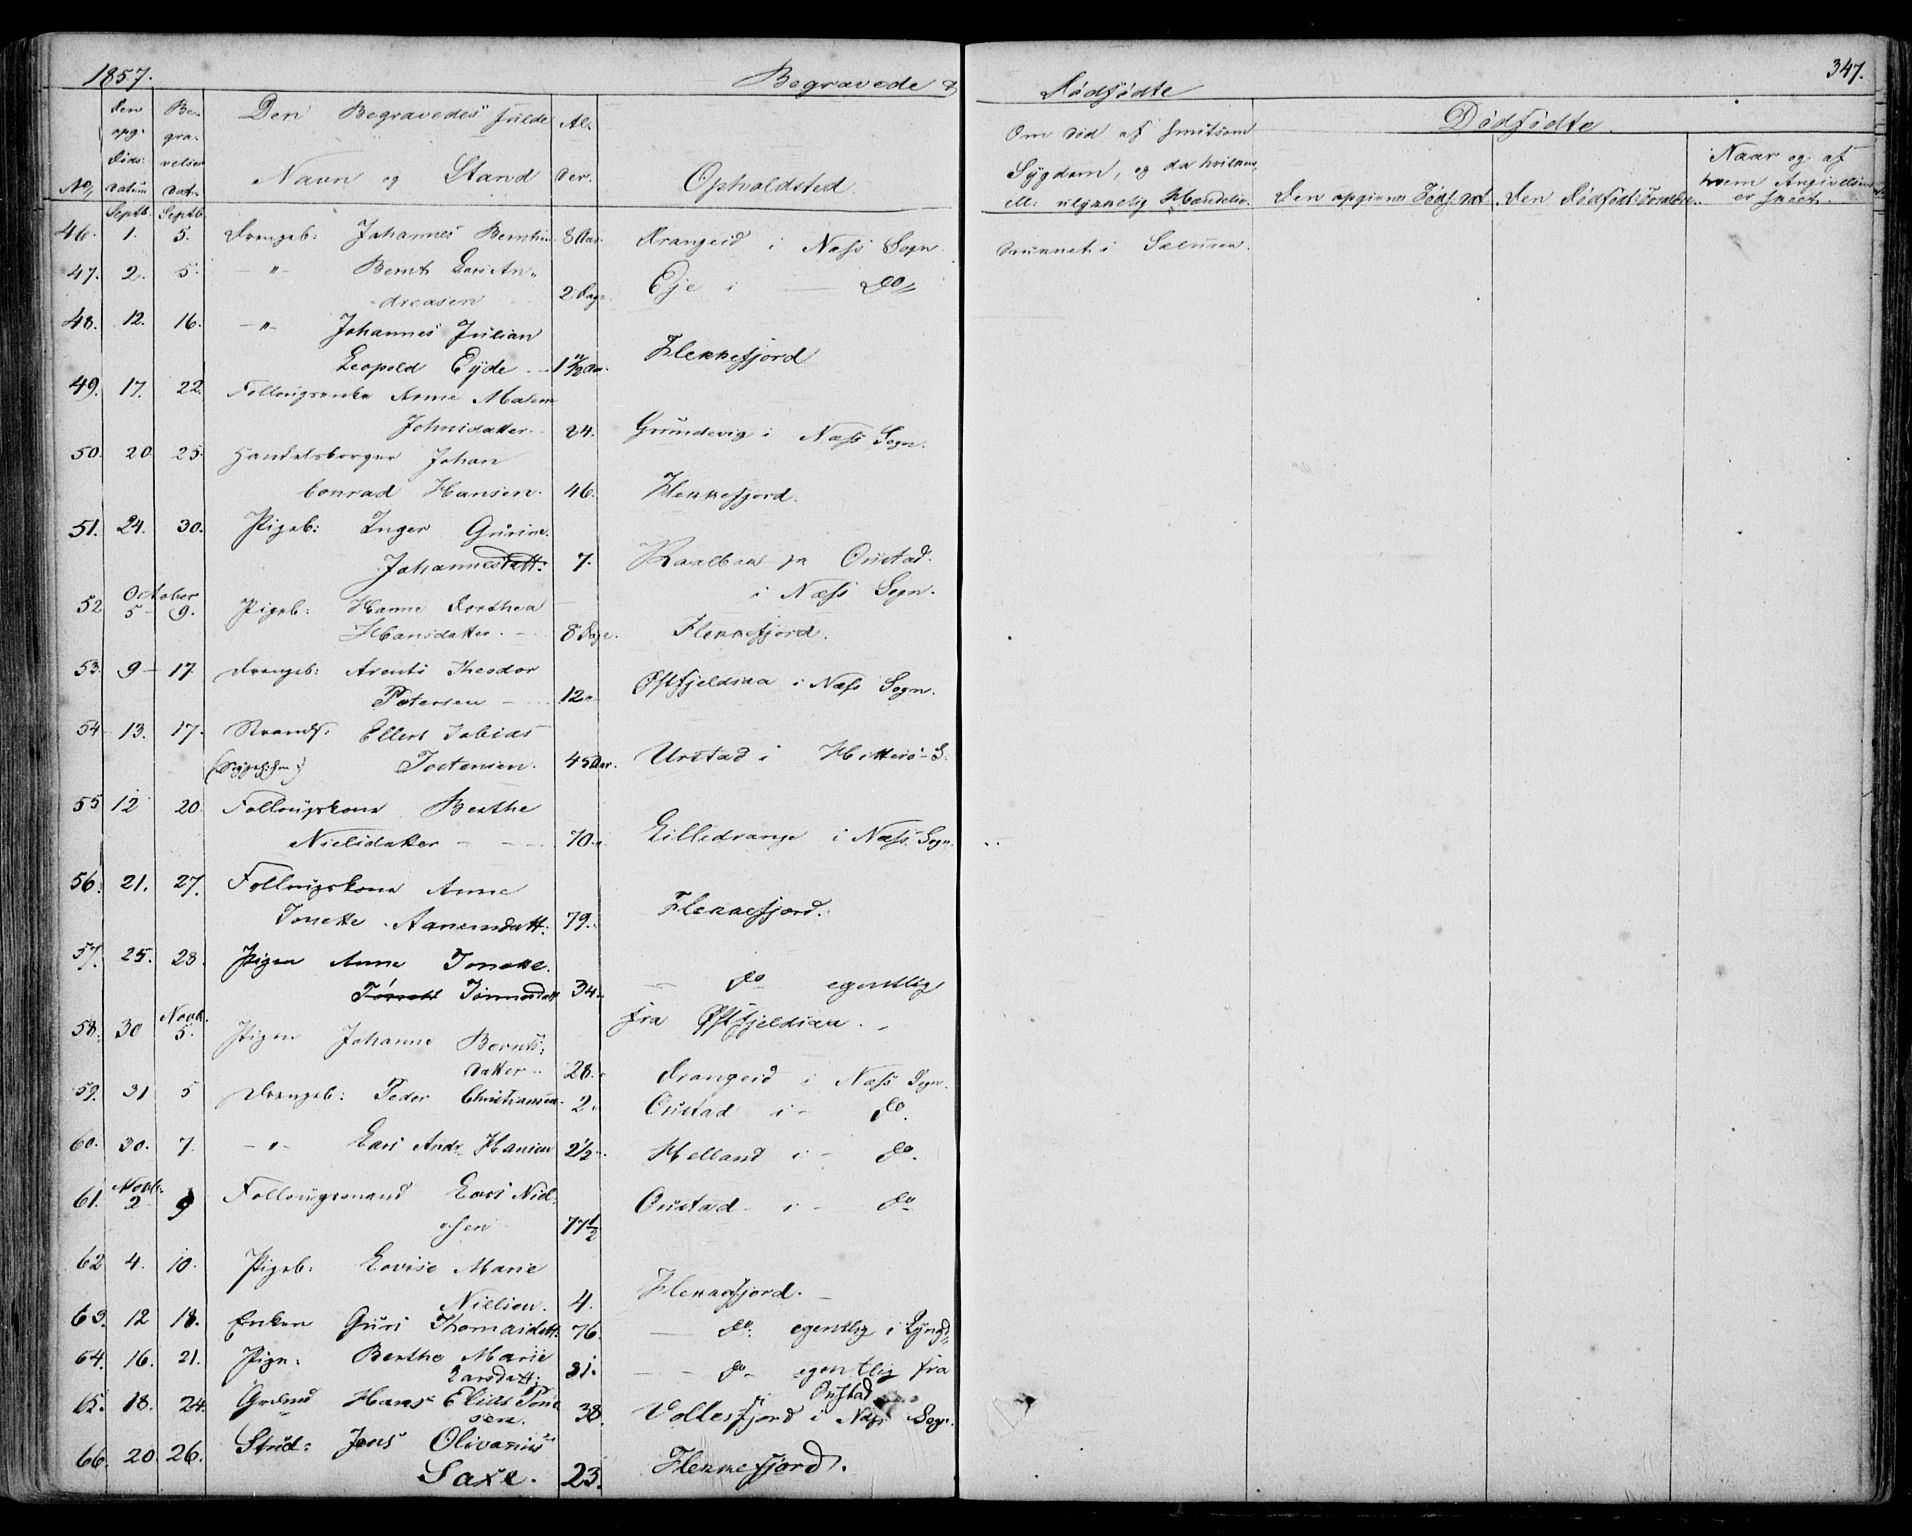 1857.
Begravede &
Dødfødte
347.
No,
Den opg: Døds: Datum
Be- gra- velses Dat:
Den Begravedes fulde
Navn og Stand
Al- der.
Opholdsted.
Om død af smitsom
Sygdom, og da hvilken,
ell: ulykkelig Hændelse.
Dødfødte.
Den opgivne Føds. Dat.
Den Dødfødtes Forældre.
Naar og af
hvem Angivelsen
er skeet.
Septb. Septb.
46. 1. 5. Drengeb: Johannes Berntsen 8 Aar. Drangeid i Næss Sogn. Druknet i Sælusen.
47. 2. 5. - " - Bernt Lars An-
dreasen 2 Dage Eje i — do
48. 12. 16. - " - Johannes Julian
Leopold Eyde 1 11/12 Aar. Flekkefjord
49. 17. 22. Follougsenke Anne Malene
Johnsdatter 84. Grundevig i Næss Sogn.
50. 20. 25. Handelsborger Johan
Conrad Hansen. 46. Flekkefjord.
51. 24. 30. Pigeb: Inger Gurine
Johannesdatt: 7. Raalben pr Oustad.
i Næss Sogn.
October
52. 5 - 9. Pigeb: Hanne Dorthea
Hansdatter. 8 Dage. Flekkefjord.
53. 9 - 17. Drengeb: Arents Theodor
Petersen 12 - Østfjeldsaa i Næss Sogn.
54. 13. 17. Strands: Ellert Tobias
Tostensen. 45 Aar. Urstad i Hitterø S.
55. 12 20. Follougskone Berthe
Nielsdatter 70. Lilledrange i Næss Sogn.
56. 21. 27. Follougskone Anne
Tonette Aanensdatt: 79. Flekkefjord.
57. 25. 28. Pigen Anne Tonette
Tønnesdatt 34. — do egentlig
fra Østfjeldsaa.
Novb.
58. 30 5. Pigen Johanne Bernts:
datter 28. Drangeid i Næss Sogn.
59. 31 5 Drengeb: Peder Christiansen 2. Oustad i - do.
60. 30. 7. - " - Lars Andr. Hansen 2 1/2 Helland i - do.
Novb.
61. 2 9 Follougsmand Lars Niel-
sen 77 1/2 Oustad - i - do
62 4. 10. Pigeb: Lovise Marie
Nielsen. 4. Flekkefjord.
63. 12 18. Enken Guri Thomasdatt. 76. — do. egentlig i Lyngd.
64. 16. 21. Pige: Berthe Marie
Larsdatt: 31. — do egentlig fra
Oustad
65. 18. 24. Hans Elias Tøne
sen. 38. Vollesfjord i Næss Sogn.
66. 20. 26. Stud: Jens Olivarius
Saxe. 23. Flekkefjord.